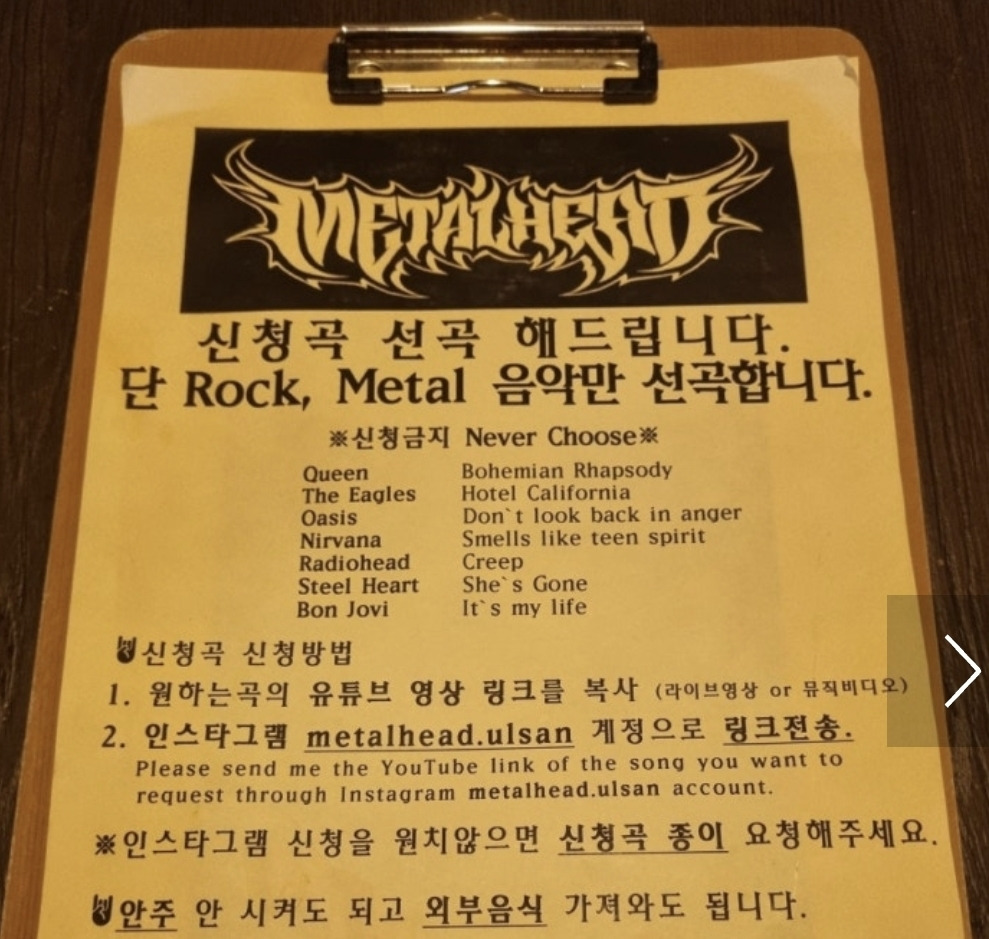 METALHEAD
신청곡 선곡 해드립니다.
단 Rock, Metal 음악만 선곡합니다.
※신청금지 Never Choose※
Queen Bohemian Rhapsody
The Eagles Hotel California
Oasis Don`t look back in anger
Nirvana Smells like teen spirit
Radiohead Creep
Steel Heart She`s Gone
Bon Jovi It`s my life
신청곡 신청방법
1. 원하는곡의 유튜브 영상 링크를 복사 (라이브영상 or 뮤직비디오)
2. 인스타그램 metalhead.ulsan 계정으로 링크전송.
Please send me the YouTube link of the song you want to
request through Instagram metalhead.ulsan account.
※인스타그램 신청을 원치않으면 신청곡 종이 요청해주세요.
안주 안 시켜도 되고 외부음식 가져와도 됩니다.